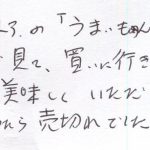 の「うまいもの
見て、買いに行き
美味しくいただ
たら売切れでした